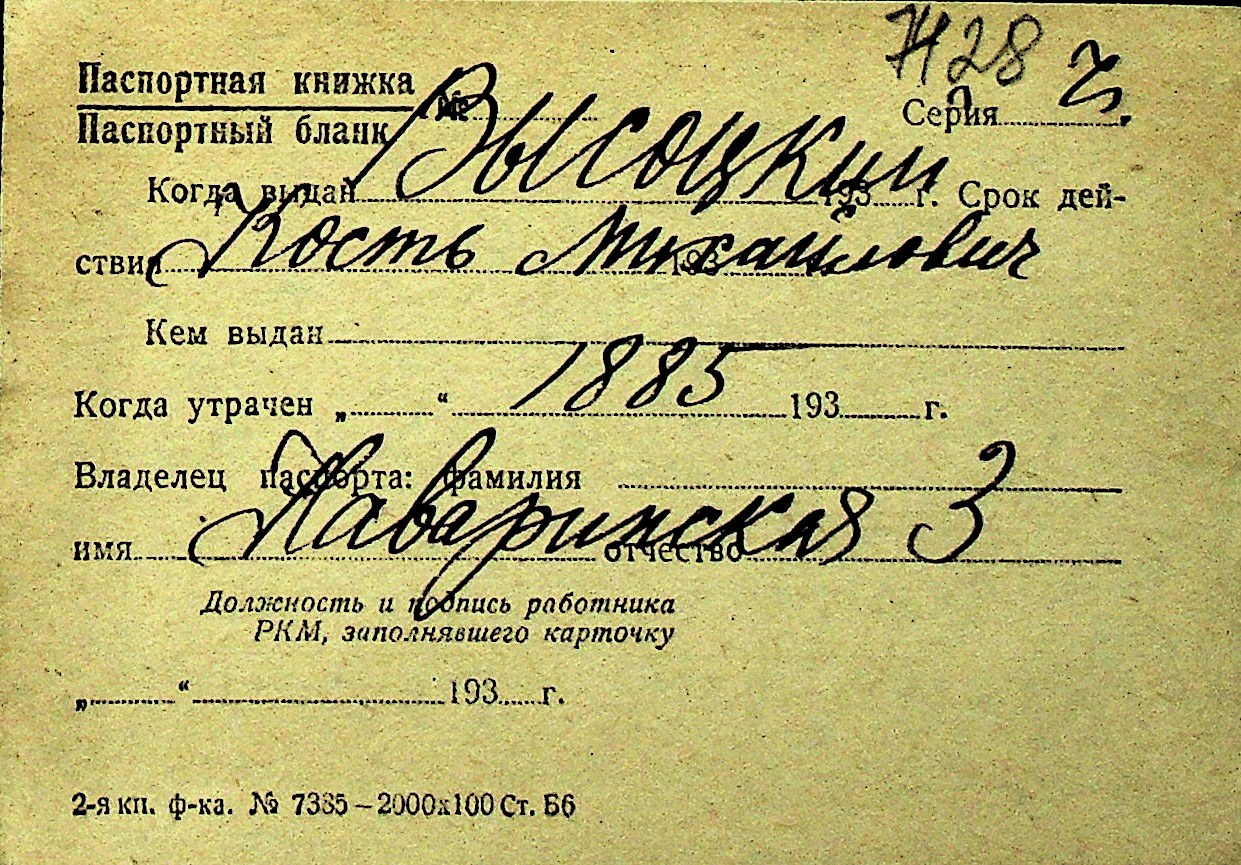 7428 ч
Паспортная книжка
№ Серия
Паспортный бланк
Высоцкий
Когда выдан 193 г. Срок дей-
Кость Михайлович
ствия 193
Кем выдан
1885
Когда утрачен „ “ 193 г.
Владелец паспорта: фамилия
Наваринская 3
имя отчество
Должность и подпись работника
РКМ, заполнявшего карточку
„ “ 193 г.
2-я кп. ф-ка. № 7385–2000х100 Ст. Б6